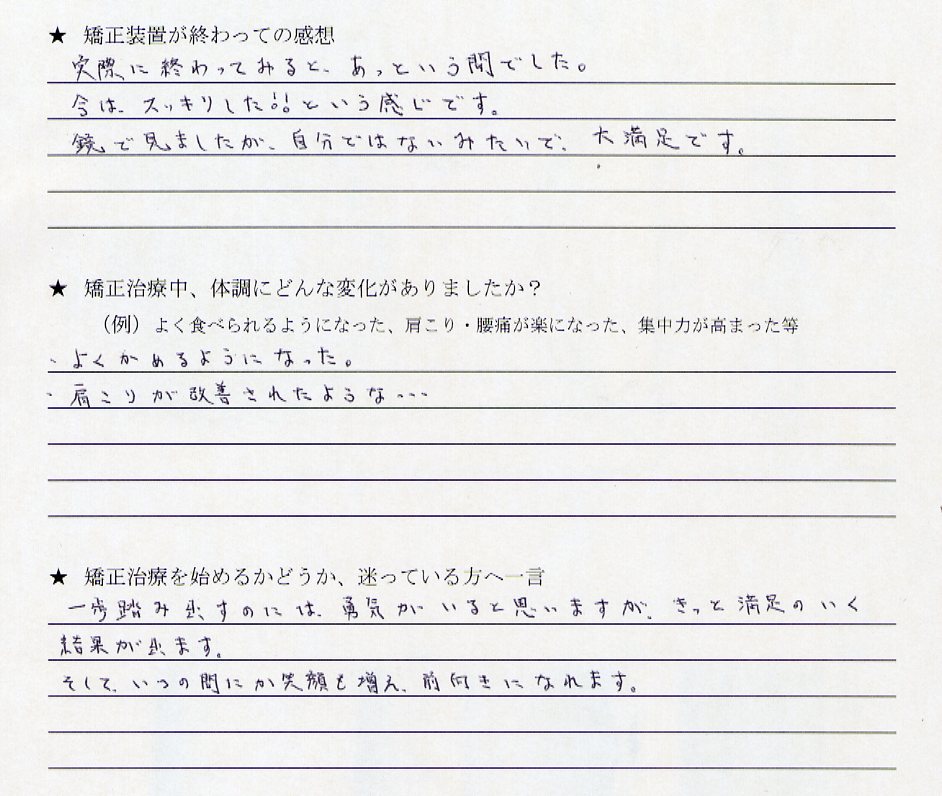 ★ 矯正装置が終わっての感想
実際に終わってみると、あっという間でした。
今は、スッキリした!!という感じです。
鏡で見ましたが、自分ではないみたいで、大満足です。
★ 矯正治療中、体調にどんな変化がありましたか?
（例）よく食べられるようになった、肩こり・腰痛が楽になった、集中力が高まった等
・よくかめるようになった。
・肩こりが改善されたような・・・
★ 矯正治療を始めるかどうか、迷っている方へ一言
一歩踏み出すのには、勇気がいると思いますが、きっと満足のいく
結果が出ます。
そして、いつの間にか笑顔も増え、前向きになれます。